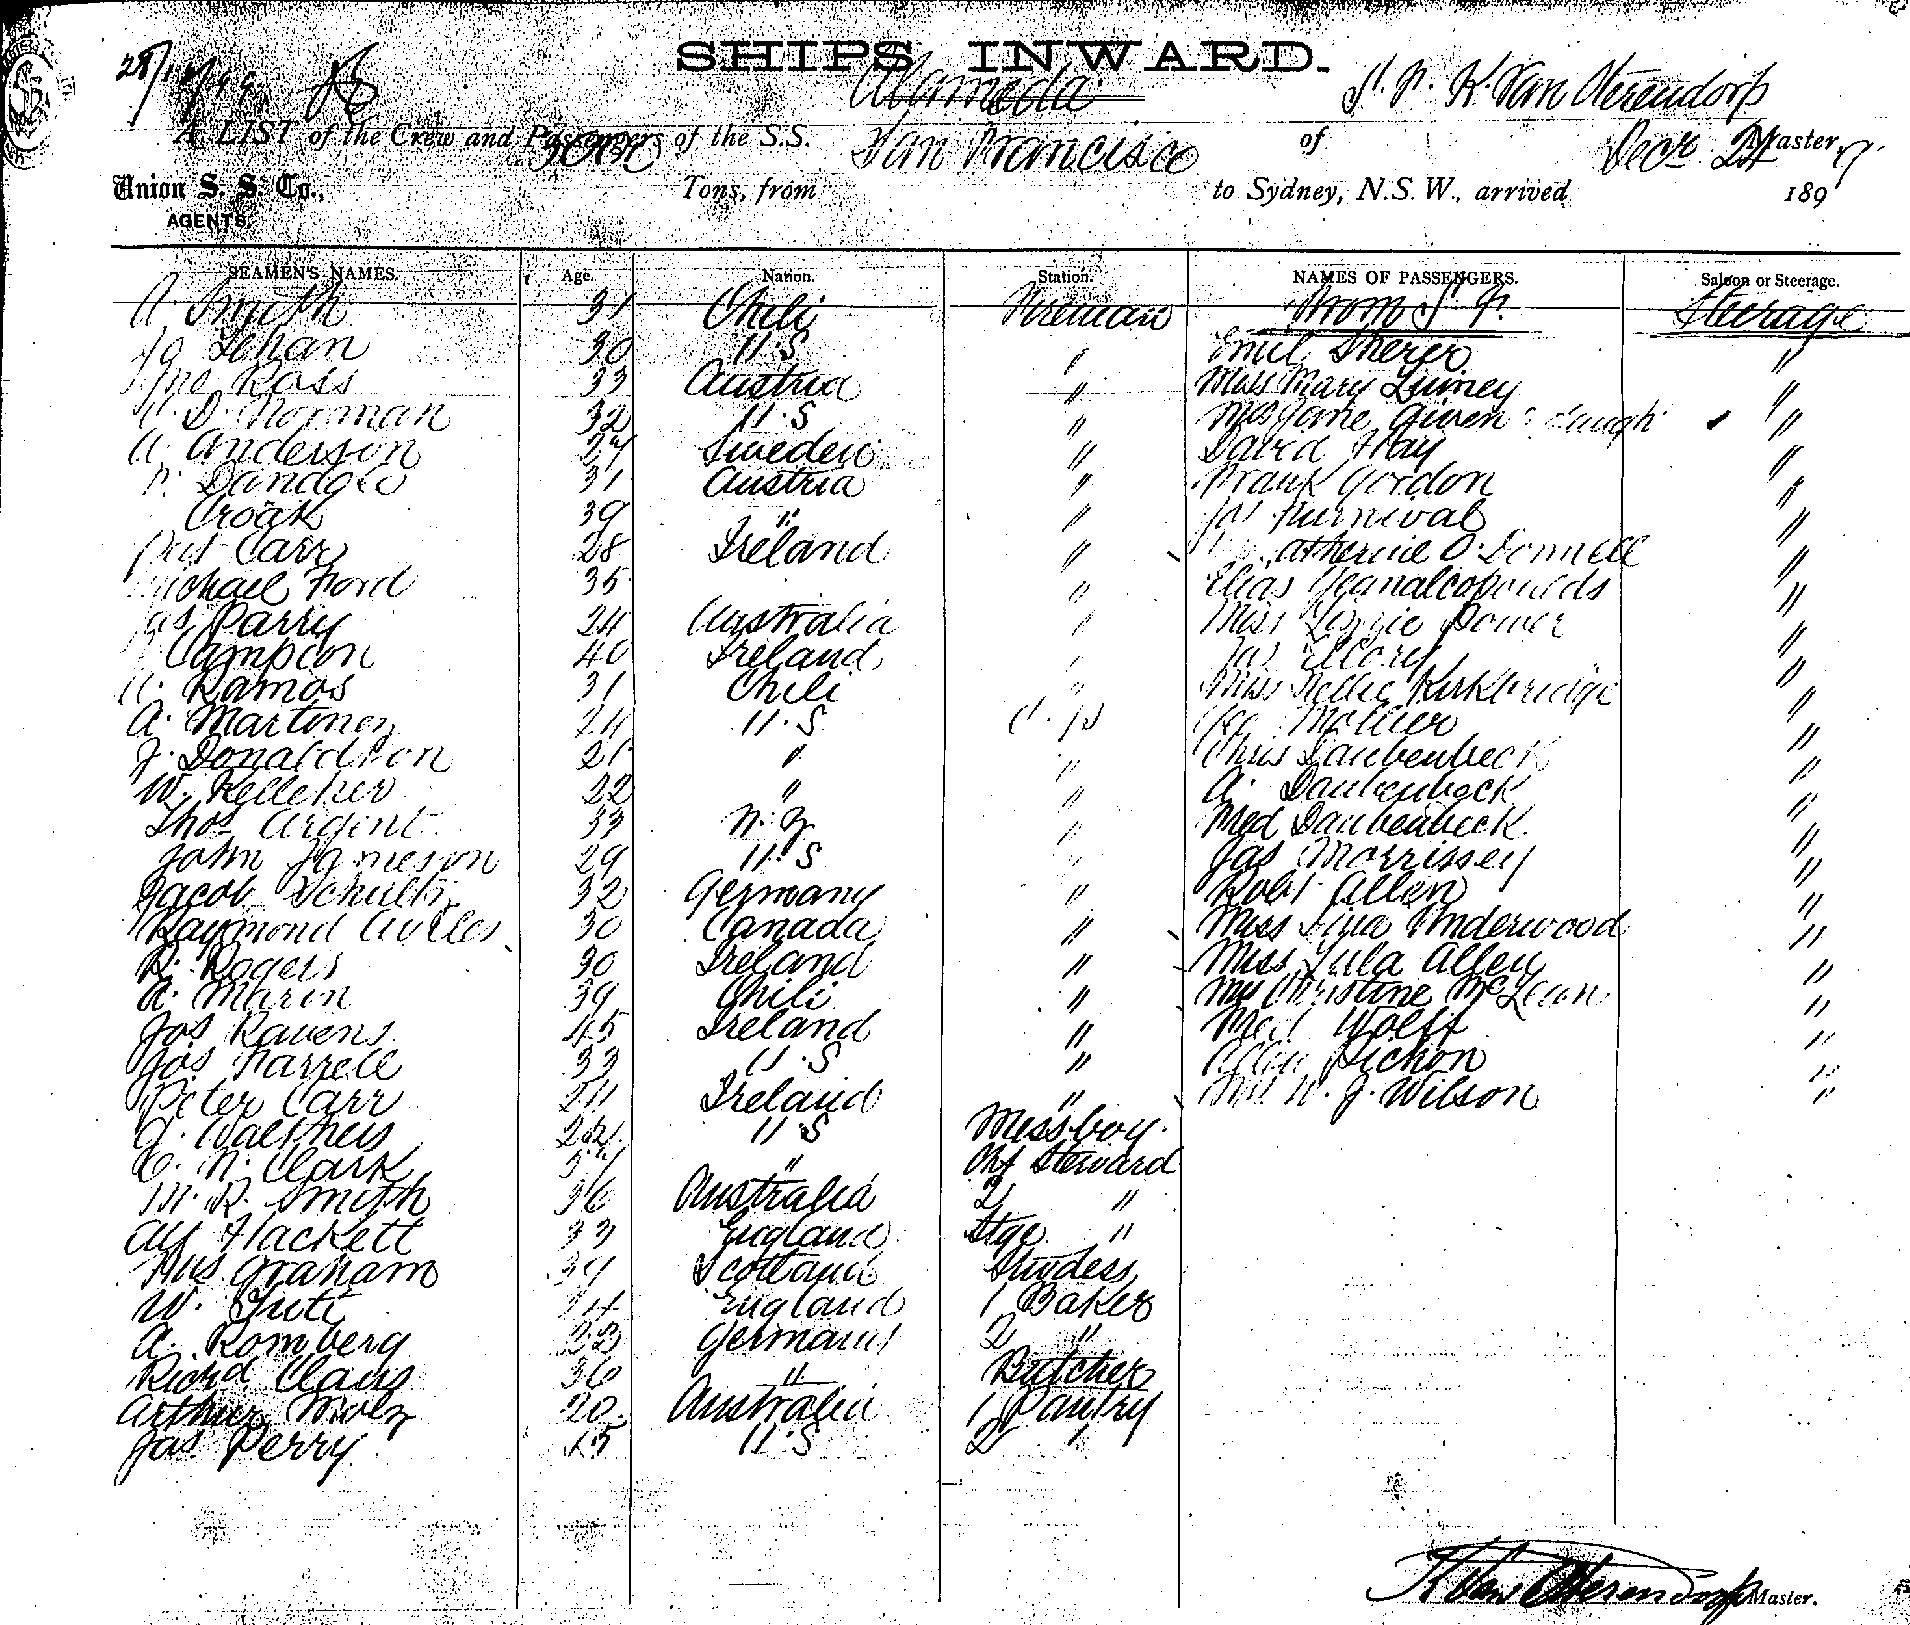 SHIPS INWARD.
Alameda S. F. K. Van Oterendorp
A LIST of the Crew and Passengers of the S.S. of Master,
San Francisco Decr 7
Union S. S. Co., Tons, from to Sydney, N.S.W., arrived 189
AGENTS.
SEAMEN'S NAMES. Age. Nation. Station. NAMES OF PASSENGERS. Saloon or Steerage.
A Smith 31 Chili Fireman From S F. Steerage
Jo Lehan 30 U.S " Emil "
Jno Ross 33 Austria " Miss Mary "
D. Norman 32 U.S " Given "
A. Anderson 27 Sweden " David Hay "
31 Austria " Frank Gordon "
Croak 39 " " Jas Furnival "
Carr 28 Ireland " Catherine O'Donnell "
Michael Ford 35 " Elias "
Jas Parry 24 Australia " Miss Lizzie Power "
Campion 40 Ireland " Jas "
A. Ramos 31 Chili " Miss Nellie Kirkbridge "
A. Martinez 24 U.S "
J. Donaldson 21 " " Chris Daubenbeck "
W. Kelleher 22 " " A. Daubenbeck "
Thos Argent 33 N.Z. " Fred Daubenbeck "
John Jameson 29 U.S " Jas Morrissey "
Jacob Schultz 32 Germany " Robt Allen "
Raymond 30 Canada " Miss Underwood "
R. Rogers 30 Ireland " Miss Lula Allen "
A. Marin 39 Chili " Christine McLean "
Jos Ravens 45 Ireland " Fred Wolff "
Jos Farrell 33 U.S " Pichon "
Peter Carr 24 Ireland " W. J. Wilson "
24 U.S Messboy
C. N. Clark " Chf Steward
M. R. Smyth 36 Australia 2 "
Alf Hackett 33 England Stge "
Graham 39 Scotland Stwdess
W. 34 England 1 Baker
A. Romberg 23 Germany 2 "
Richd Claus 36 " Butcher
Arthur 20 Australia 1 Pantry
Jas Perry U.S 2 "
K Van Oterendorp Master.